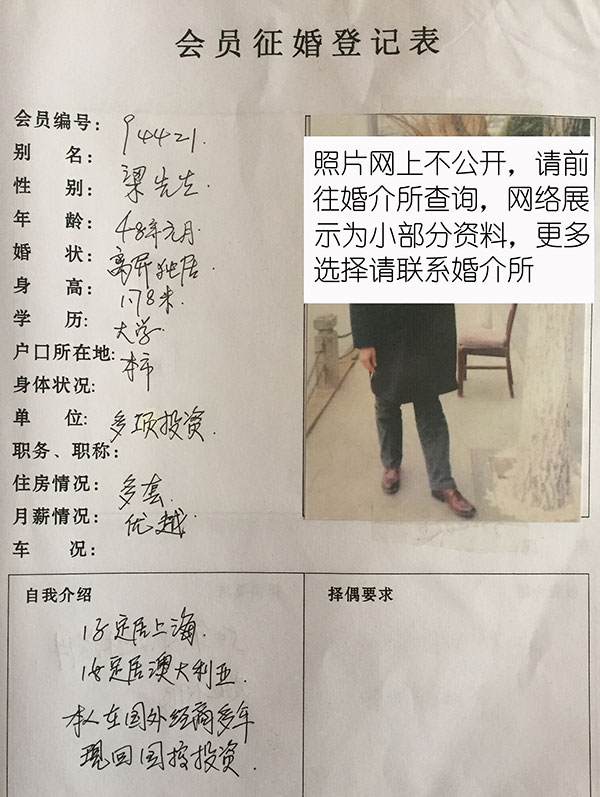 会员征婚登记表
会员编号: 94421.
别 名:
性 别: 梁先生.
年 龄: 48年元月.
婚 状: 离异独居
身 高: 1.78米.
学 历: 大学
户口所在地: 本市
身体状况:
单 位: 多项投资.
职务、职称:
住房情况: 多套.
月薪情况: 优越
车 况:
照片网上不公开，请前
往婚介所查询，网络展
示为小部分资料，更多
选择请联系婚介所
自我介绍
定居上海.
定居澳大利亚.
本人在国外经商多年
现回国投资.
择偶要求